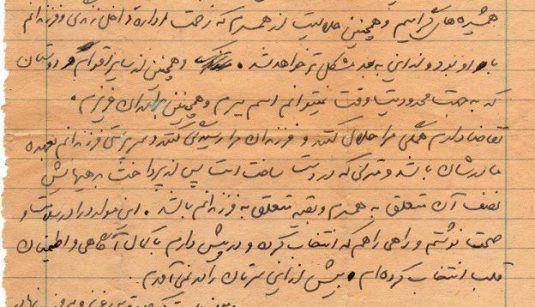 همشیره‌های گرامیم و همچنین حلالیت از همسرم که زحمت اداره داخل زندگی و فرزندانم
با او بود و از این به بعد مشکل تر خواهد شد. و همچنین از سایر اقوام و دوستان
که به جهت محدودیت وقت نمیتوانم اسم ببرم و همچنین از فرزندان عزیزم.
تقاضا دارم همگی مرا حلال کنند و فرزندان مرا رسیدگی کنند و سرپرستی فرزندانم بعهده
مادرشان باشد و منزلی که در دست ساخت است پس از پرداخت بدهیهایش
نصف آن متعلق به همسرم و بقیه متعلق به فرزندانم باشد. این موارد را در سلامت و
صحت نوشتم و راهی را هم که انتخاب کرده و در پیش دارم با کمال آگاهی و اطمینان
قلب انتخاب کرده‌ام. بیش از این سرتان را درد نمی‌آورم.